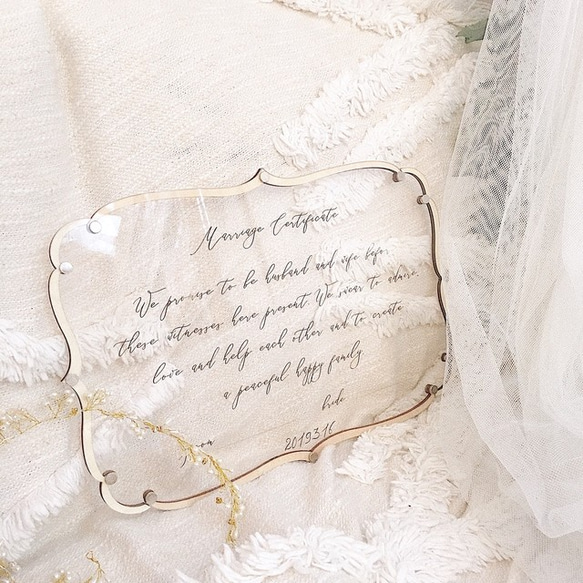 Marriage Certificate
We promise to be husband and wife before
these witnesses here present. We swear to admire,
love and help each other and to create
a peaceful happy family.
bride
2019.3.16